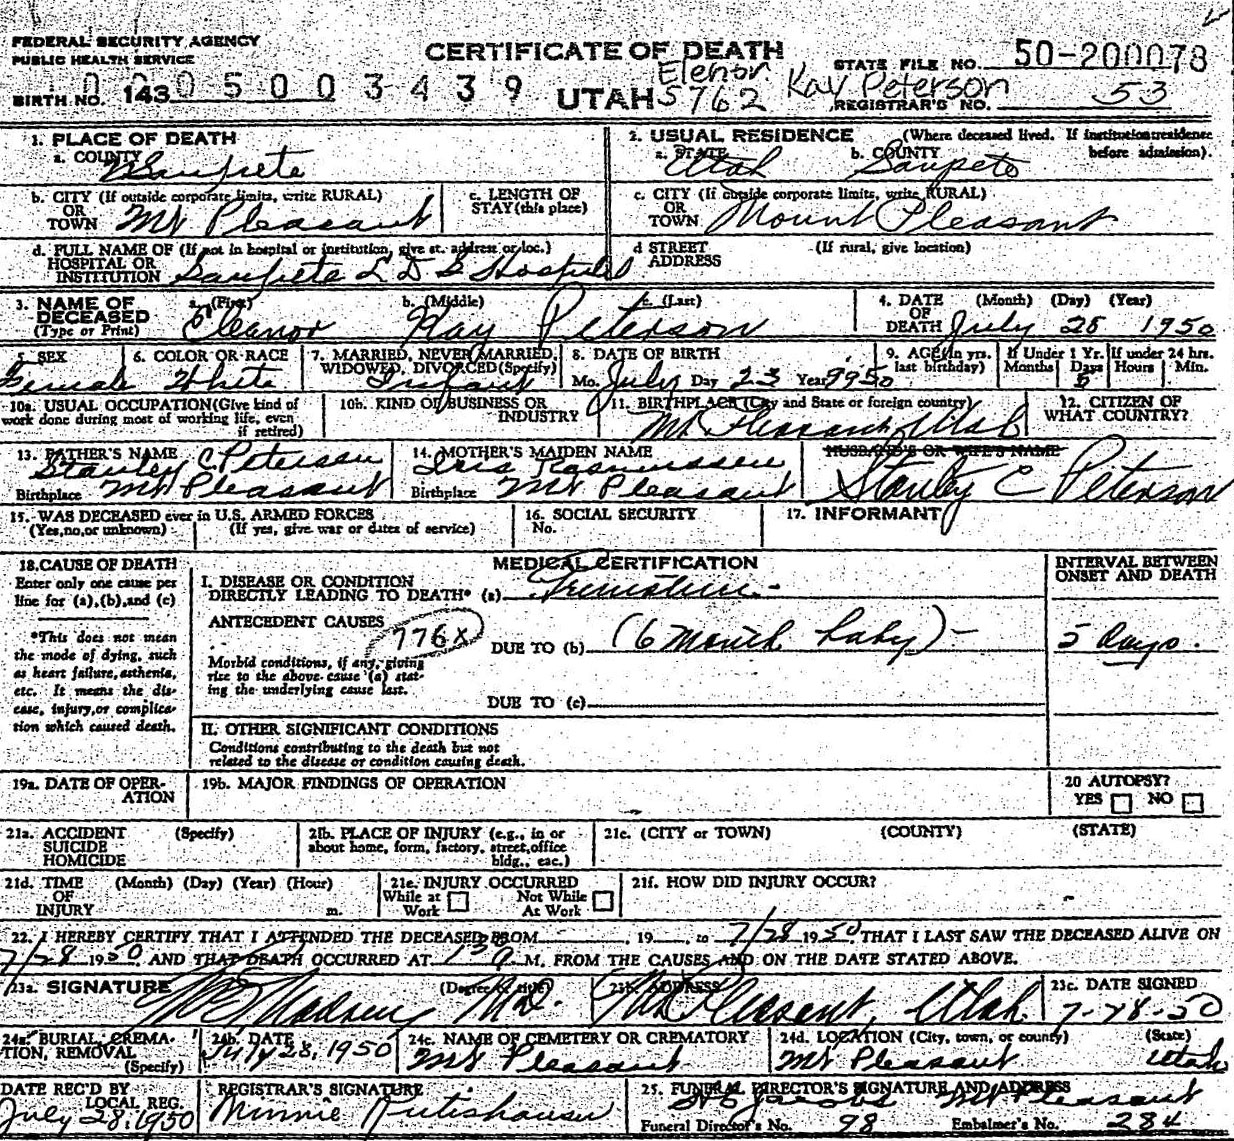 FEDERAL SECURITY AGENCY
PUBLIC HEALTH SERVICE
CERTIFICATE OF DEATH
STATE FILE NO. 50-200078
BIRTH NO. 143 0 0 0 5 0 0 3 4 3 9
UTAH 5762
Elenor Kay Peterson
REGISTRAR'S NO. 53
1. PLACE OF DEATH
a. COUNTY Sanpete
2. USUAL RESIDENCE (Where deceased lived. If institution:residence before admission).
a. STATE Utah b. COUNTY Sanpete
b. CITY (If outside corporate limits, write RURAL)
OR
TOWN Mt Pleasant
c. LENGTH OF
STAY (this place)
c. CITY (If outside corporate limits, write RURAL)
OR
TOWN Mount Pleasant
d. FULL NAME OF (If not in hospital or institution, give st. address or loc.)
HOSPITAL OR
INSTITUTION Sanpete L D S Hospital
d STREET (If rural, give location)
ADDRESS
3. NAME OF DECEASED
(Type or Print)
a. (First) b. (Middle) c. (Last)
Eleanor Kay Peterson
4. DATE (Month) (Day) (Year)
OF
DEATH July 28 1950
5. SEX
Female
6. COLOR OR RACE
White
7. MARRIED, NEVER MARRIED,
WIDOWED, DIVORCED (Specify)
Infant
8. DATE OF BIRTH
Mo. July Day 23 Year 1950
9. AGE (In yrs.
last birthday)
If Under 1 Yr.
Months Days
5
If under 24 hrs.
Hours Min.
10a. USUAL OCCUPATION (Give kind of
work done during most of working life, even
if retired)
10b. KIND OF BUSINESS OR
INDUSTRY
11. BIRTHPLACE (City and State or foreign country)
Mt Pleasant, Utah
12. CITIZEN OF
WHAT COUNTRY?
13. FATHER'S NAME
Stanley C. Peterson
Birthplace Mt Pleasant
14. MOTHER'S MAIDEN NAME
Iris Rasmussen
Birthplace Mt Pleasant
HUSBAND'S OR WIFE'S NAME
Stanley C Peterson
15. WAS DECEASED ever in U.S. ARMED FORCES
(Yes,no,or unknown) (If yes, give war or dates of service)
16. SOCIAL SECURITY
No.
17. INFORMANT
18. CAUSE OF DEATH
Enter only one cause per
line for (a),(b),and (c)
*This does not mean
the mode of dying, such
as heart failure, asthenia,
etc. It means the dis-
ease, injury, or complica-
tion which caused death.
MEDICAL CERTIFICATION
INTERVAL BETWEEN
ONSET AND DEATH
I. DISEASE OR CONDITION
DIRECTLY LEADING TO DEATH* (a) Premature
ANTECEDENT CAUSES
776X
DUE TO (b) (6 Month baby) - 5 days.
Morbid conditions, if any, giving
rise to the above cause (a) stat-
ing the underlying cause last.
DUE TO (c)
II. OTHER SIGNIFICANT CONDITIONS
Conditions contributing to the death but not
related to the disease or condition causing death.
19a. DATE OF OPER-
ATION
19b. MAJOR FINDINGS OF OPERATION
20 AUTOPSY?
YES NO
21a. ACCIDENT (Specify)
SUICIDE
HOMICIDE
21b. PLACE OF INJURY (e.g., in or
about home, form, factory, street, office
bldg., esc.)
21c. (CITY or TOWN) (COUNTY) (STATE)
21d. TIME (Month) (Day) (Year) (Hour)
OF
INJURY m.
21e. INJURY OCCURRED
While at Work Not While At Work
21f. HOW DID INJURY OCCUR?
22. I HEREBY CERTIFY THAT I ATTENDED THE DECEASED FROM , 19 , to 7/28 1950, THAT I LAST SAW THE DECEASED ALIVE ON
7/28 1950 AND THAT DEATH OCCURRED AT M, FROM THE CAUSES AND ON THE DATE STATED ABOVE.
23a. SIGNATURE (Degree or title)
Madsen M.D.
23b. ADDRESS
Mt Pleasant, Utah
23c. DATE SIGNED
7-28-50
24a. BURIAL, CREMA-
TION, REMOVAL
(Specify)
24b. DATE
July 28, 1950
24c. NAME OF CEMETERY OR CREMATORY
Mt Pleasant
24d. LOCATION (City, town, or county) (State)
Mt Pleasant Utah
DATE REC'D BY
LOCAL REG.
July 28, 1950
REGISTRAR'S SIGNATURE
Minnie Rutishauser
25. FUNERAL DIRECTOR'S SIGNATURE AND ADDRESS
Jacobs Mt Pleasant
Funeral Director's No. 98 Embalmer's No. 284